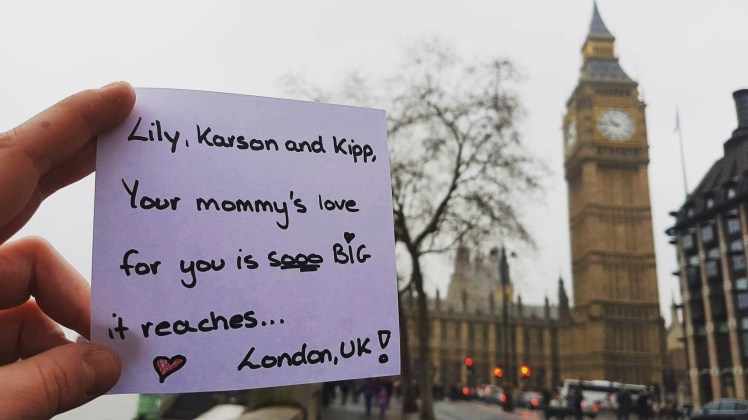 Lily, Karson and Kipp,
Your mommy's love
for you is sooo BIG
it reaches...
London, UK!